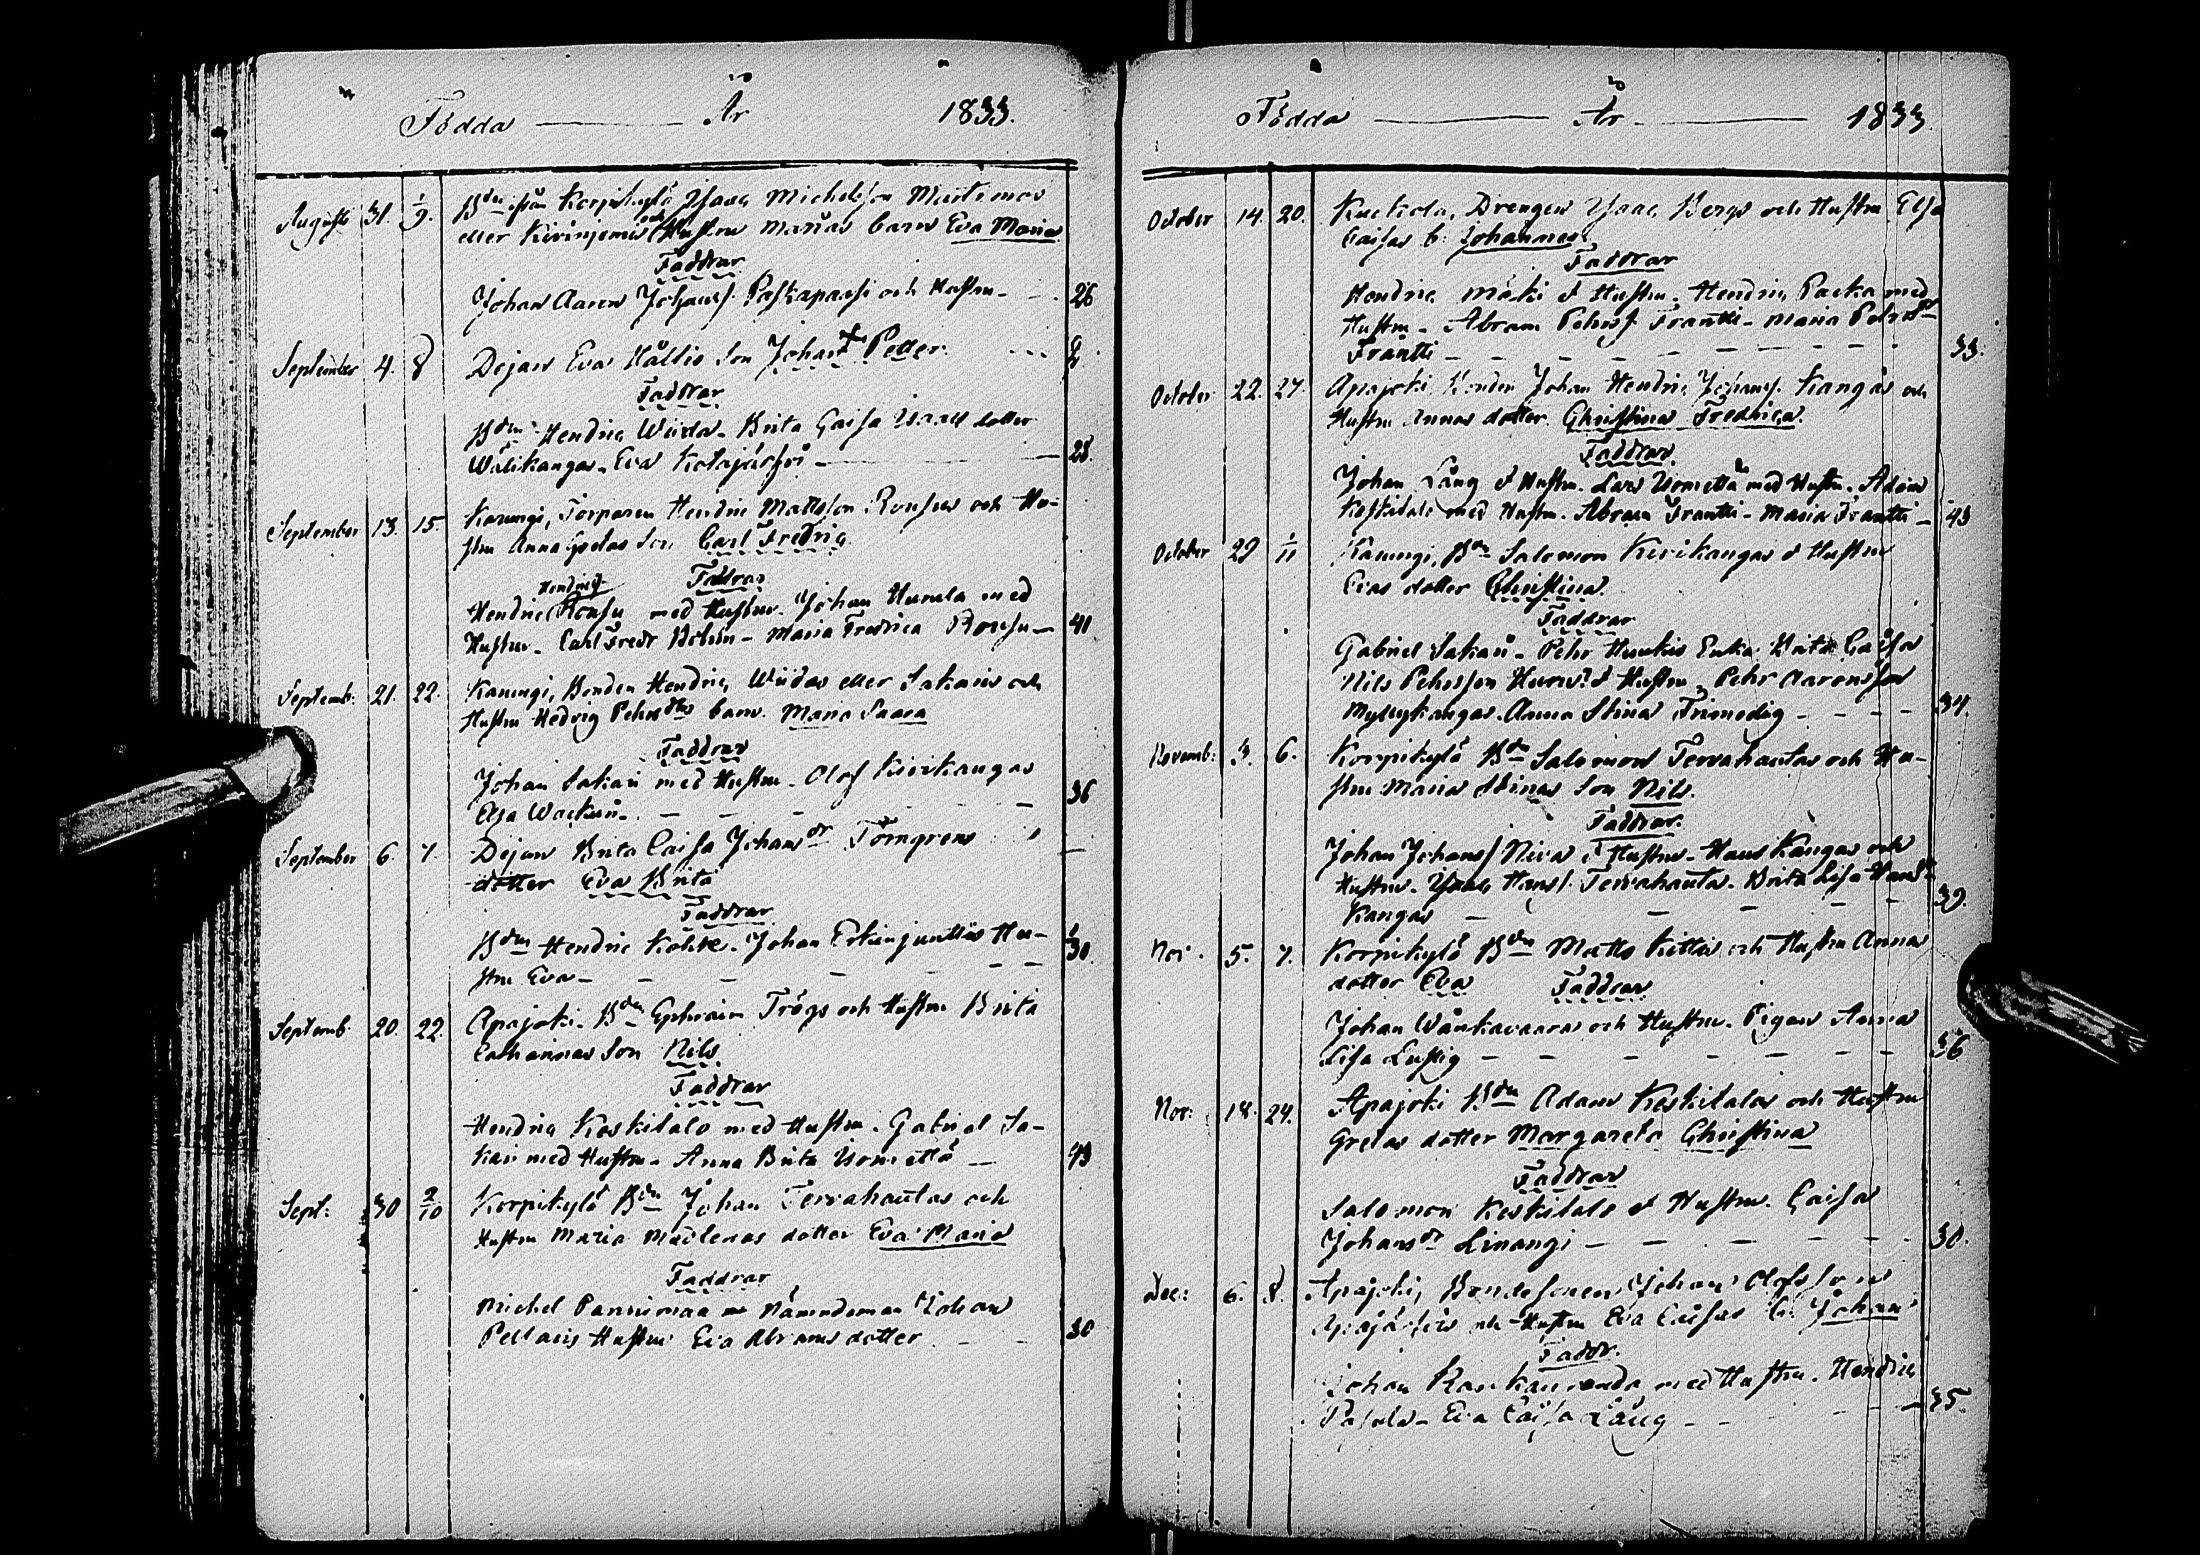 Födda — År 1833.
Augusti 31. 1/9. Bdn ifrån Korpikylä Isaac Michelsson Martimos
eller Kirinjemis och Hustru Marias barn Eva Maria
Faddrar
Johan Aaron Johanss. och Hustru - 26
September 4. 8 Dejan Eva son Johan Petter. 2
Faddrar
Bdn Hendric Wiida. Brita Caisa Isaacs dotter
Wälikangas. Eva 28.
September 13. 15. Karungi, Torparen Hendric Mattsson Rousus och Hu-
stru Anna Gretas son Carl Fredric
Faddrar
Hendric Rousu med Hustru. Johan Hurula med
Hustru. Carl Fredr Bohm - Maria Fredrica Rousu - 41
Septemb. 21. 22. Karungi, Bonden Hendric Wiidas eller Lakais och
Hustru Hedvig Pehrsdrs barn. Maria
Faddrar
Johan Lakai med Hustru. Olof Kirikangas
Elsa 36
September 6. 7. Dejan Brita Caisa Johansdr Törngrens
dotter Eva Brita
Faddrar
Bdn Hendric Kohke. Johan Erkinjunttis Hu-
stru Eva - 30.
Septemb. 20. 22. Apajoki. Bdn Ephraim Trögs och Hustru Brita
Catharinas son Nils
Faddrar
Hendric Koskitalo med Hustru. Gabriel La-
kai med Hustru. Anna Brita 43
Sept. 30 2/10 Korpikylä Bdn Johan Tervahautas och
Hustru Maria Madlenas dotter Eva Maria
Faddrar
Michel Pannimaa Nämndeman Johan
Hustru Eva Abrams dotter 30
Födda — År — 1833.
October 14. 20. Kuckola, Drengen Isaac Bergs och Hustru Elsa
Caisas b. Johannes.
Faddrar
Hendric Mäki & Hustru. Hendric Packa med
Hustru - Abram Pehrs. Frantti - Maria Pehrsdr
Frantti - 33.
October 22. 27. Apajoki Bonden Johan Hendric Johanss. Kangas och
Hustru Annas dotter. Christina Fredrica.
Faddrar.
Johan Lång & Hustru. Lars med Hustru. Adam
Koskitalo med Hustru. Abram Frantti - Maria Frantti - 43
October 29 1/11 Karungi, Bdn Salomon Kirikangas & Hustru
Evas dotter Christina.
Faddrar
Gabriel Lakai - Pehr Enka Brita Caisa
Nils Pehrsson & Hustru. Pehr Aaronsson
Myllykangas. Anna Stina Trimodig - 34.
Novemb: 3. 6. Korpikylä Bdn Salomon Tervahautas och Hu-
stru Maria Stinas son Nils.
Faddrar.
Johan Johanss Niva & Hustru - Hans Kangas och
Hustru. Isaac Hanss. Tervahauta. Brita Lisa Hansdr
Kangas - 39.
Nov. 5. 7. Korpikylä Bdn Matts Kittis och Hustru Annas
dotter Eva Faddrar
Johan Wänkavaara och Hustru. Pigan Anna
Lisa Lustig - 36
Nov: 18. 24. Apajoki Bdn Adam Koskitalos och Hustru
Gretas dotter Margareta Christina
Faddrar
Salomon Koskitalo & Hustru. Caisa
Johansdr Linangi - 30.
Dec: 6. 8. Apajoki, Bondesonen Johan Olofssons
och Hustru Eva Caisas b. Johan
Faddr.
Johan med Hustru. Hendric
Eva Caisa Lång - 35.